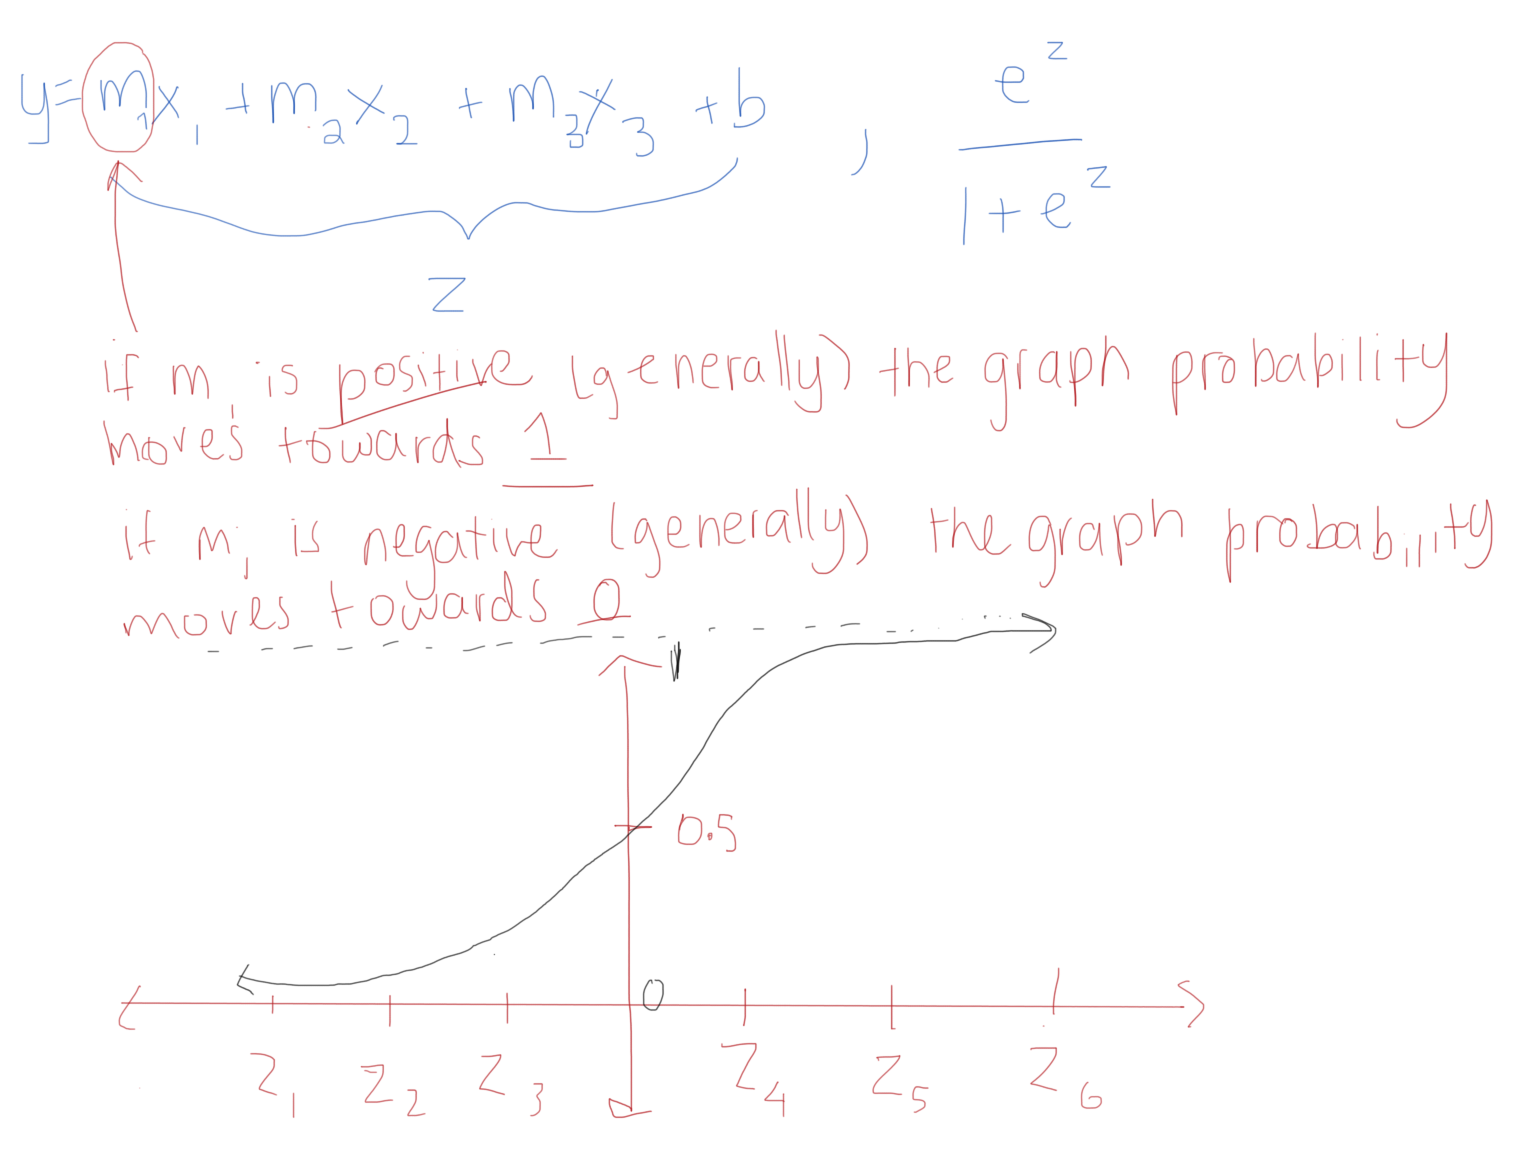 y=m₁x₁ +m₂x₂ +m₃x₃ +b , e^z / 1+e^z
z
if m₁ is positive (generally) the graph probability
moves towards 1
if m₁ is negative (generally) the graph probability
moves towards 0
1
0.5
0
z₁ z₂ z₃ z₄ z₅ z₆